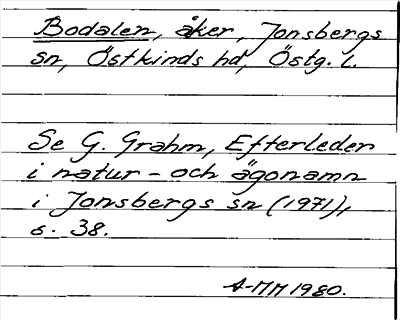 Bodalen, åker, Jonsbergs
sn, Östkinds hd, Östg. l.
Se G. Grahm, Efterleder
i natur- och ägonamn
i Jonsbergs sn (1971),
s. 38.
A-MM 1980.